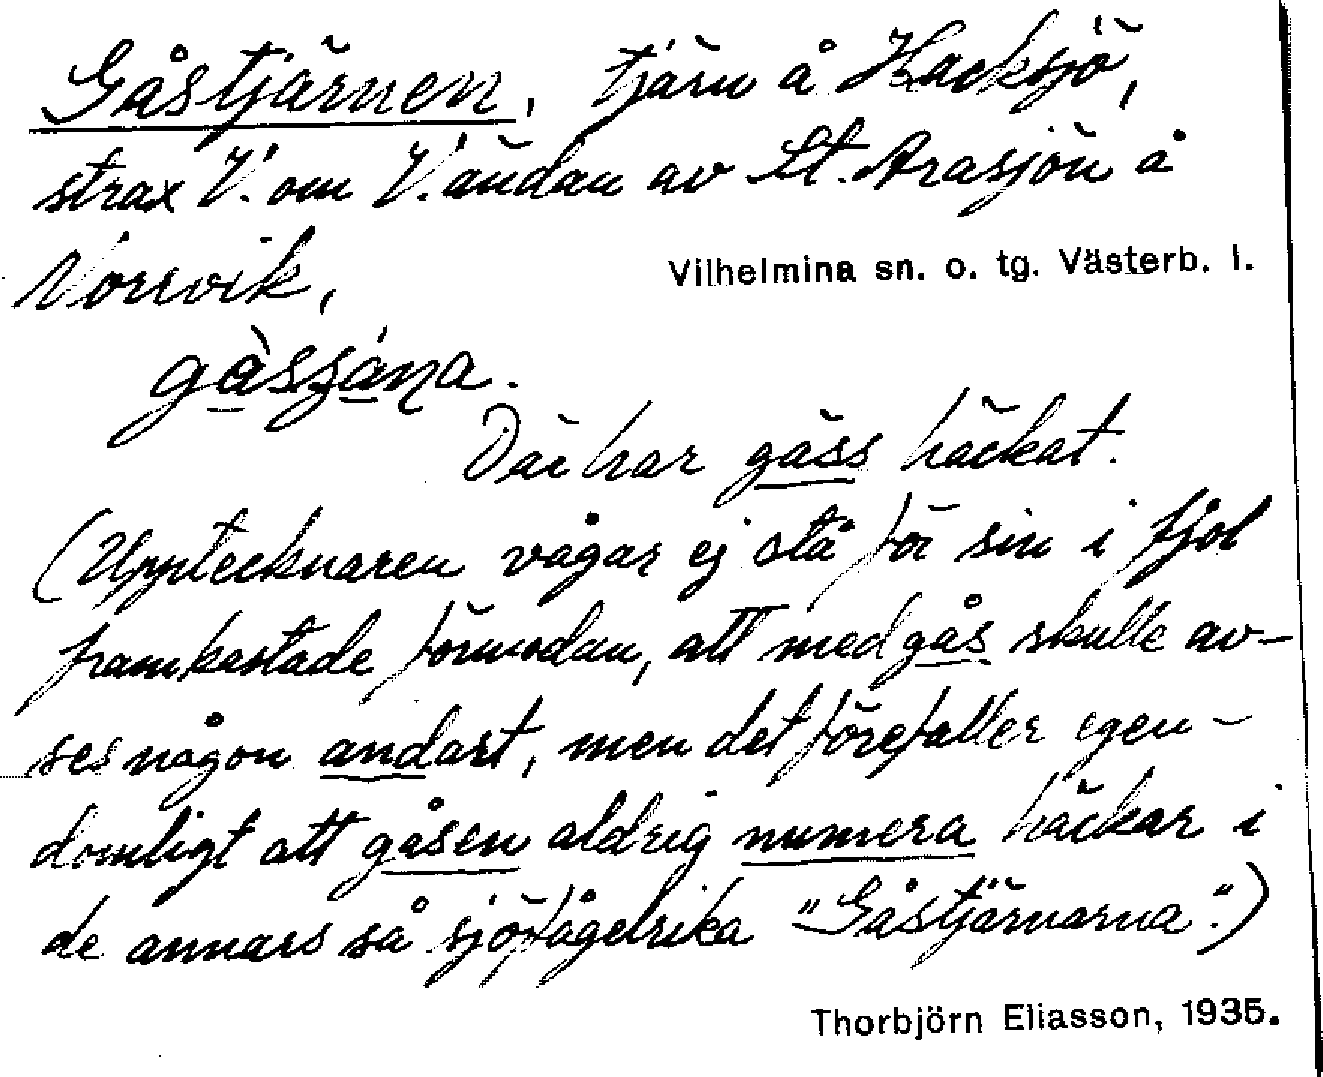 Gåstjärnen, tjärn å Hacksjö,
strax V. om V. ändan av St. Arasjön å
Norrvik,
Vilhelmina sn. o. tg. Västerb. l.
Där har gäss häckat.
(Upptecknaren vågar ej stå för sin i fjol
framkastade förmodan, att med gås skulle av-
ses någon andart, men det förefaller egen-
domligt att gåsen aldrig numera häckar i
de annars så sjöfågelrika "Gåstjärnarna".)
Thorbjörn Eliasson, 1935.